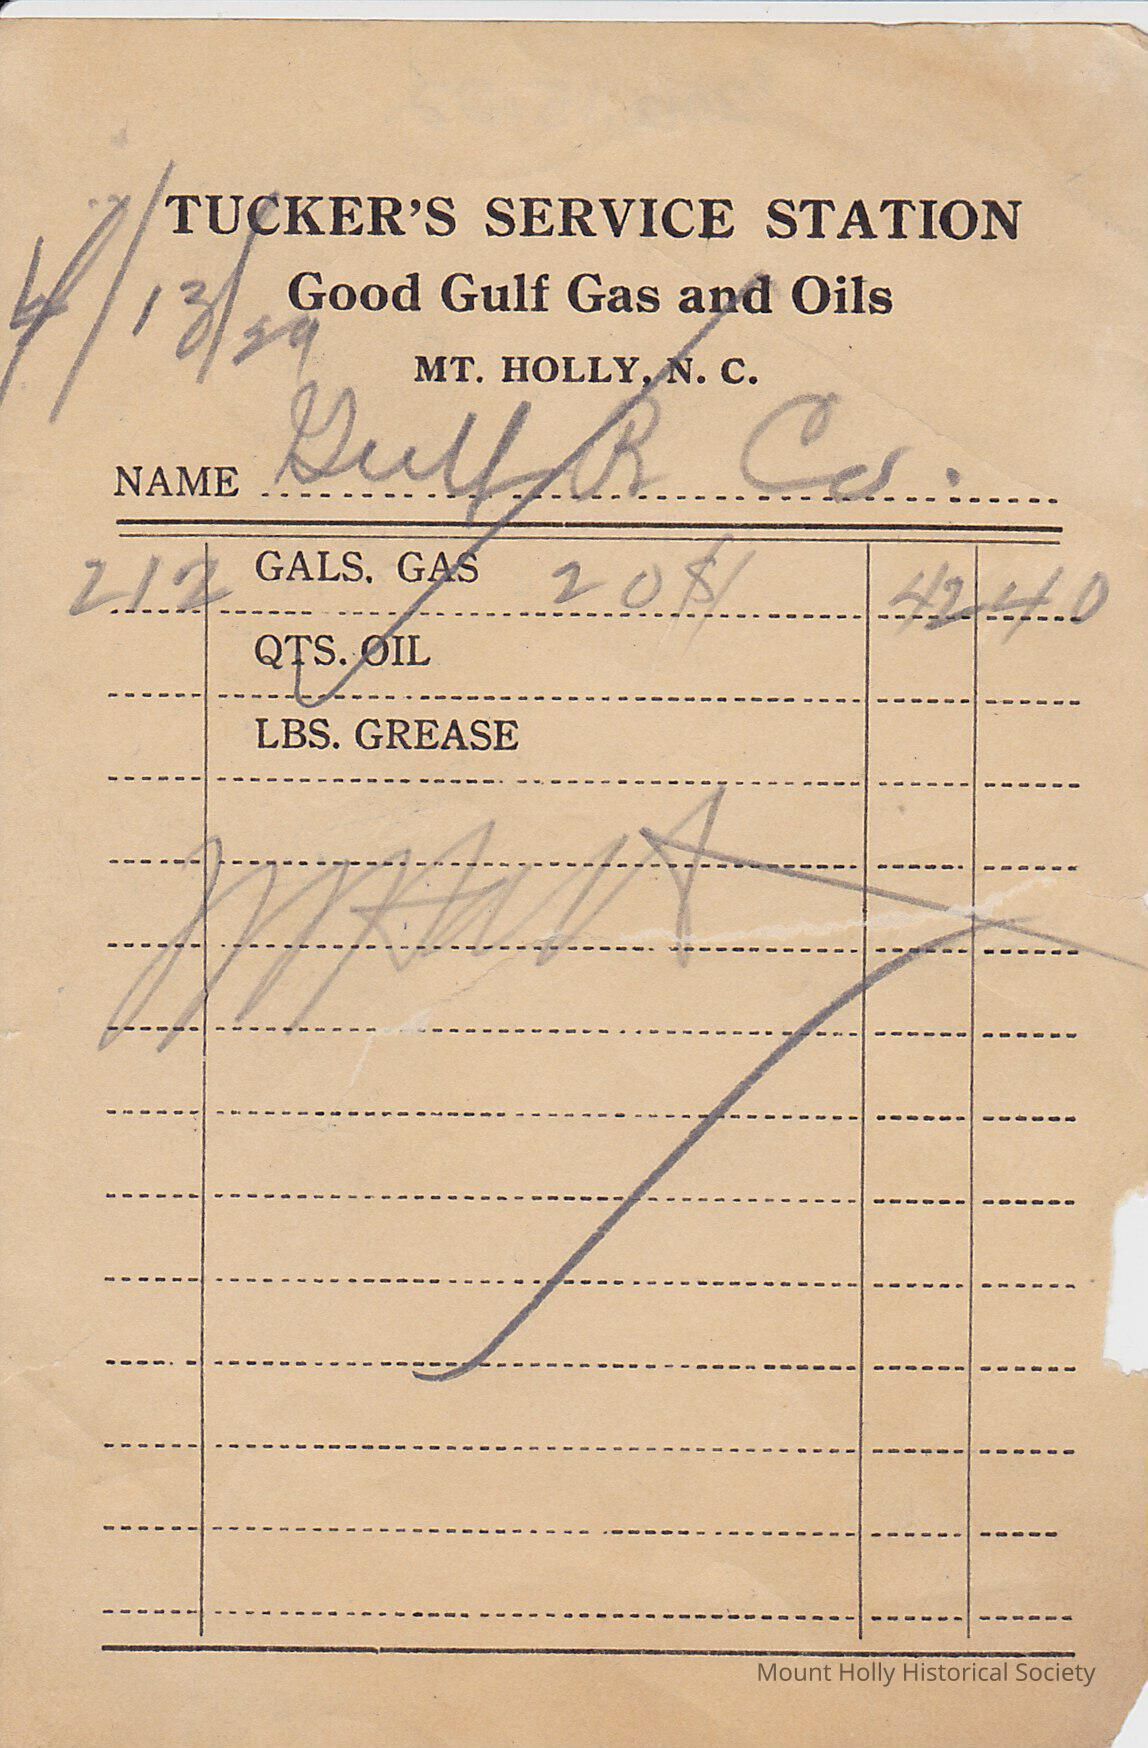 TUCKER'S SERVICE STATION
Good Gulf Gas and Oils
MT. HOLLY, N. C.
4/13/29
NAME Gulf R Co.
212 GALS. GAS 20¢ 42 40
QTS. OIL
LBS. GREASE
Mount Holly Historical Society